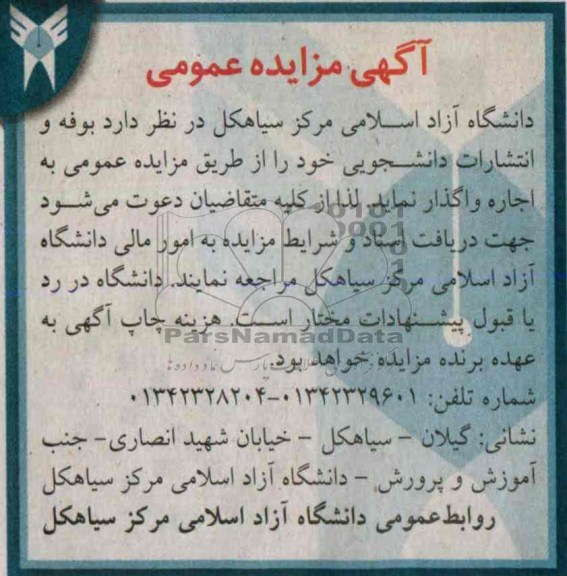 آگهی مزایده عمومی
دانشگاه آزاد اسلامی مرکز سیاهکل در نظر دارد بوفه و
انتشارات دانشجویی خود را از طریق مزایده عمومی به
اجاره واگذار نماید. لذا از کلیه متقاضیان دعوت می‌شود
جهت دریافت اسناد و شرایط مزایده به امور مالی دانشگاه
آزاد اسلامی مرکز سیاهکل مراجعه نمایند. دانشگاه در رد
یا قبول پیشنهادات مختار است. هزینه چاپ آگهی به
ParsNamadData
عهده برنده مزایده خواهد بود.
شماره تلفن: ۰۱۳۴۲۳۲۹۶۰۱-۰۱۳۴۲۳۲۸۲۰۴
نشانی: گیلان - سیاهکل - خیابان شهید انصاری- جنب
آموزش و پرورش - دانشگاه آزاد اسلامی مرکز سیاهکل
روابط‌عمومی دانشگاه آزاد اسلامی مرکز سیاهکل